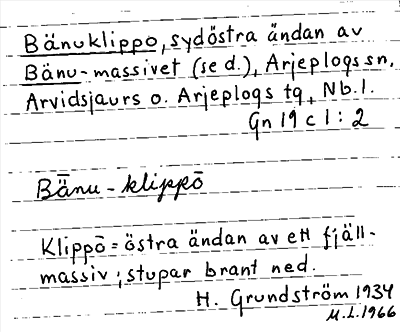 Bänuklippo, sydöstra ändan av
Bänu-massivet (se d.), Arjeplogs sn,
Arvidsjaurs o. Arjeplogs tg, Nb. l.
Gn 19 c 1 : 2
Bā̈nu - klippō
Klippō = östra ändan av ett fjäll-
massiv; stupar brant ned.
H. Grundström 1934
M.L. 1966